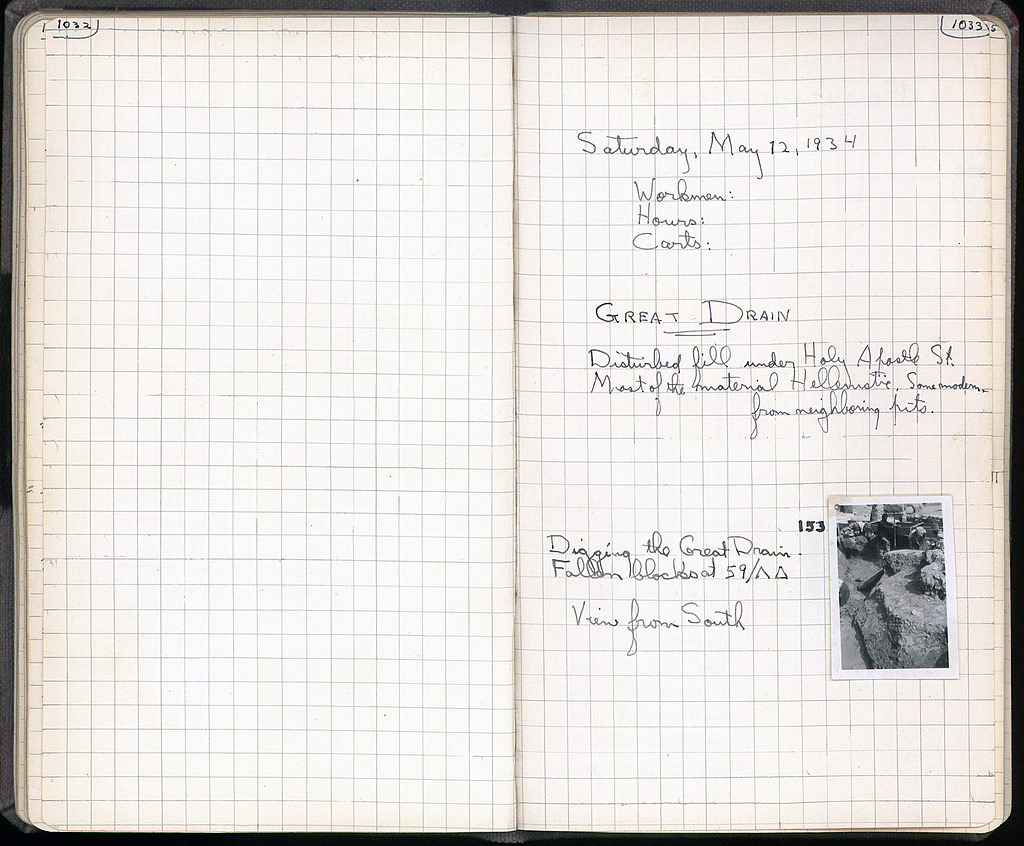 1032
1033
Saturday, May 12, 1934
Workmen:
Hours:
Carts:
GREAT DRAIN
Disturbed fill under Holy Apostle St.
Most of the material Hellenistic, Some modern
from neighboring pits.
153
Digging the Great Drain.
Fallen blocks at 59/ΛΔ
View from South